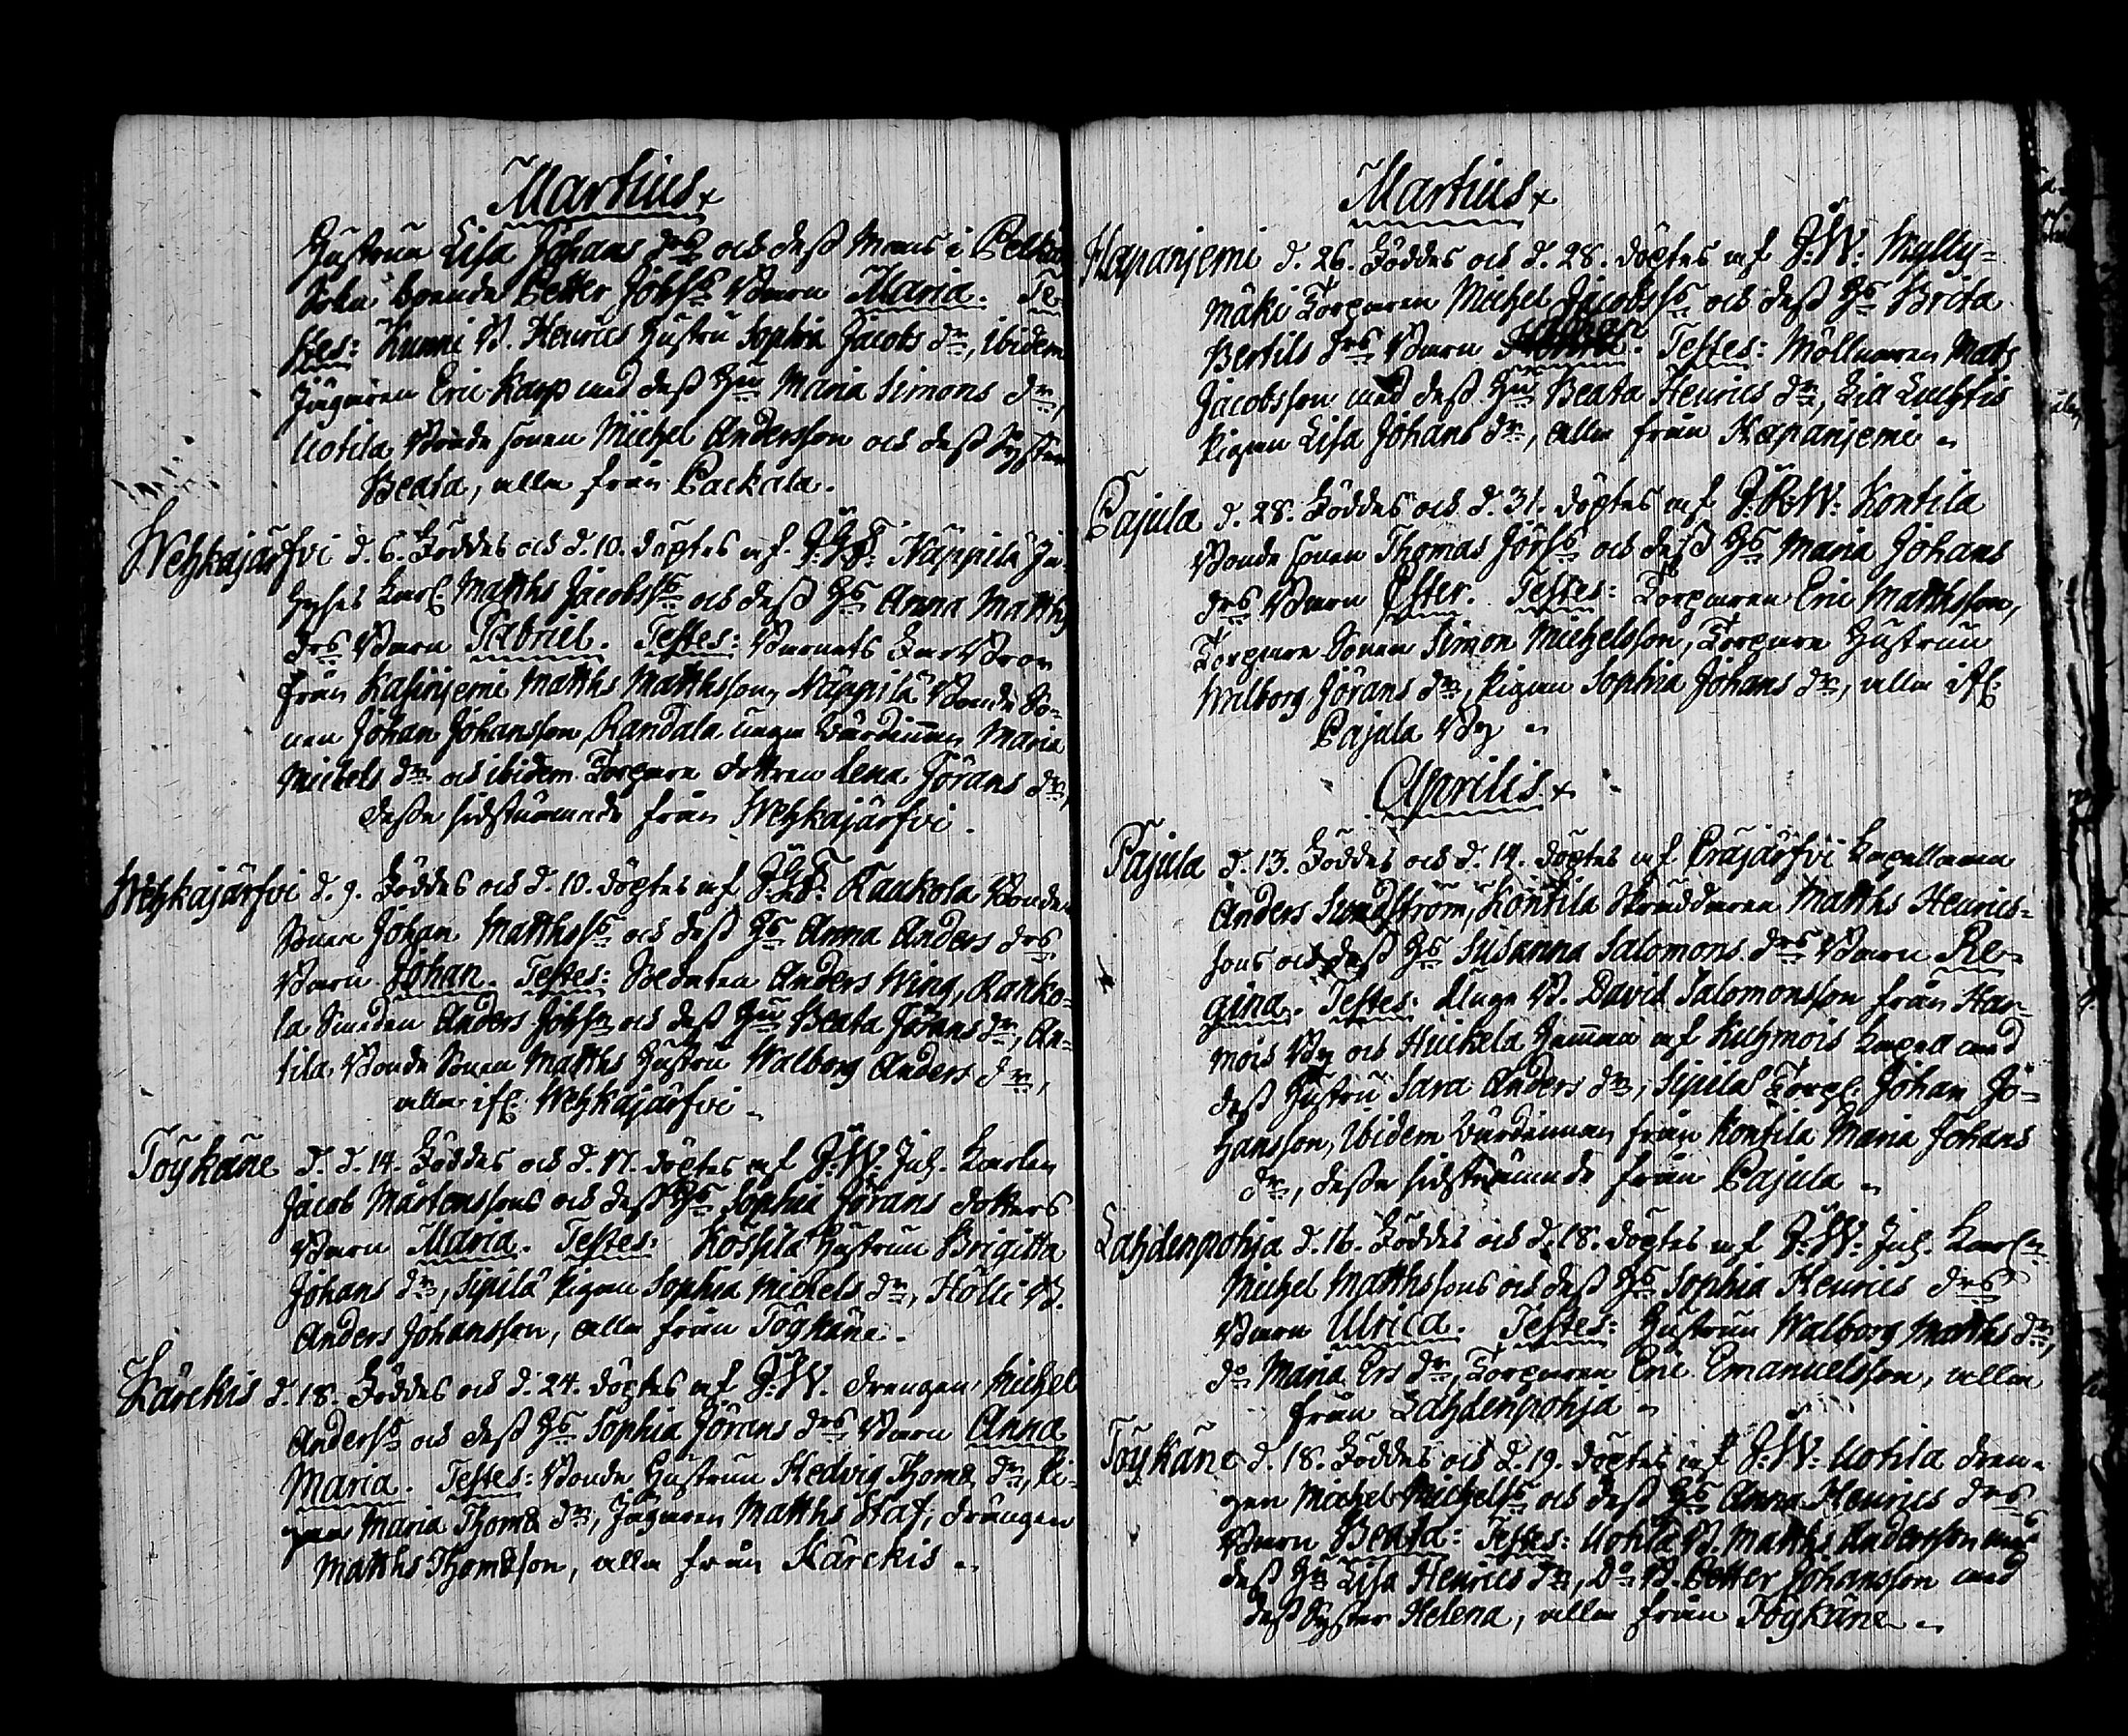 Martius
Hustrun Lisa Johans drs och dess Mans i Pelka
Sokn boende Petter Johss Barn Maria. Te-
stes: Kunni B. Henrics Hustru Sophia Jacobs dr, ibidem
Jägaren Eric Karp med dess Hu Maria Simons dr,
Uotila Bonde sonen Michel Andersson och dess Syster
Beata, alla från Packala.
Wehkajärfvi d. 6. Föddes och d. 10. döptes af Näppilä In-
hyses Karl Matths Jacobss och dess Hs Anna Matths
drs Barn Gabriel. Testes: Barnets Far Bror
från Kasinjemi Matths Matthsson, Näppilä Bonde So-
nen Johan Johansson, Randala unga Värdinnan Maria
Michels dr och ibidem Torpare dottren Lena Görans dr,
desse sidstnämnde från Wehkajärfvi.
Wehkajärfvi d. 9. Föddes och d. 10. döptes af Raukola Bonde
Sonen Johan Matthss och dess Hs Anna Anders drs
Barn Johan. Testes: Soldaten Anders Wing, Rauko-
la Smeden Anders Johsn och dess Hu Beata Görans dr, An-
tila Bonde Sonen Matths Hustru Walborg Anders dr,
alla if. Wehkajärfvi
Töykäne d. d. 14. Föddes och d. 17. döptes af J: W: Inh. Karlen
Jacob Mårtenssons och dess Hs Sophia Görans dotters
Barn Maria. Testes: Kossila Hustrun Brigitta
Johans dr, Sipilä Pigan Sophia Michels dr, Hölli B.
Anders Johansson, alla från Töykäne.
Kärckis d. 18. Föddes och d. 24. döptes af J: W. drengen Michel
Anderss och dess Hs Sophia Görans drs Barn Anna
Maria. Testes: Bonde Hustrun Hedvig Thomæ dr, Pi-
gan Maria Thomæ dr, Jägaren Matths Staf, drängen
Matths Thomæson, alla från Kärckis
Martius
Hapanjemi d. 26. Föddes och d. 28. döptes af J: W: Mylly-
mäki Torparen Michel Jacobss och dess Hs Brita
Bertils drs Barn Testes: Möllnaren Mats
Jacobsson med dess Hu Beata Henrics dr,
Pigan Lisa Johans dr, alla från Hapanjemi
Pajula d. 28. Föddes och d. 31. döptes af J: W: Kontila
Bonde sonen Thomas Jörss och dess Hs Maria Johans
drs Barn Ester. Testes: Torparen Eric Matthsson,
Torpare Sonen Simon Michelsson, Torpare Hustrun
Walborg Görans dr, Pigan Sophia Johans dr, alla if.
Pajula By
Aprilis
Pajula d. 13. Föddes och d. 14. döptes af Eräjärfvi Kapellanen
Anders Sundström, Kontila Skräddaren Matths Henrics-
sons och dess Hs Susanna Salomons drs Barn Re-
gina. Testes: Kluga B. David Salomonsson från Har-
mois By och Huckela Hemman af Kuhmois Kapell med
dess Hustru Sara Anders dr, Sipilä Torp. Johan Jo-
hansson, Ibidem Värdinnan från Kontila Maria Johans
dr, desse sidstnämnde från Pajula
Lahdenpohja d. 16. Föddes och d. 18. döptes af J: W: Inh. Karln
Michel Matthssons och dess Hs Sophia Henrics drs
Barn Ulrica. Testes: Hustrun Walborg Matths dr,
do Maria Ers dr, Torparen Eric Emanuelsson, alla
från Lahdenpohja
Töykäne d. 18. Föddes och d. 19. döptes af J: W: Uotila dren-
gen Michel Michelss och dess Hs Anna Henrics drs
Barn Beata: Testes: Uotila B. Matths Andersson med
dess Hu Lisa Henrics dr, Do B. Petter Johansson med
dess Syster Helena, alla från Töykäne